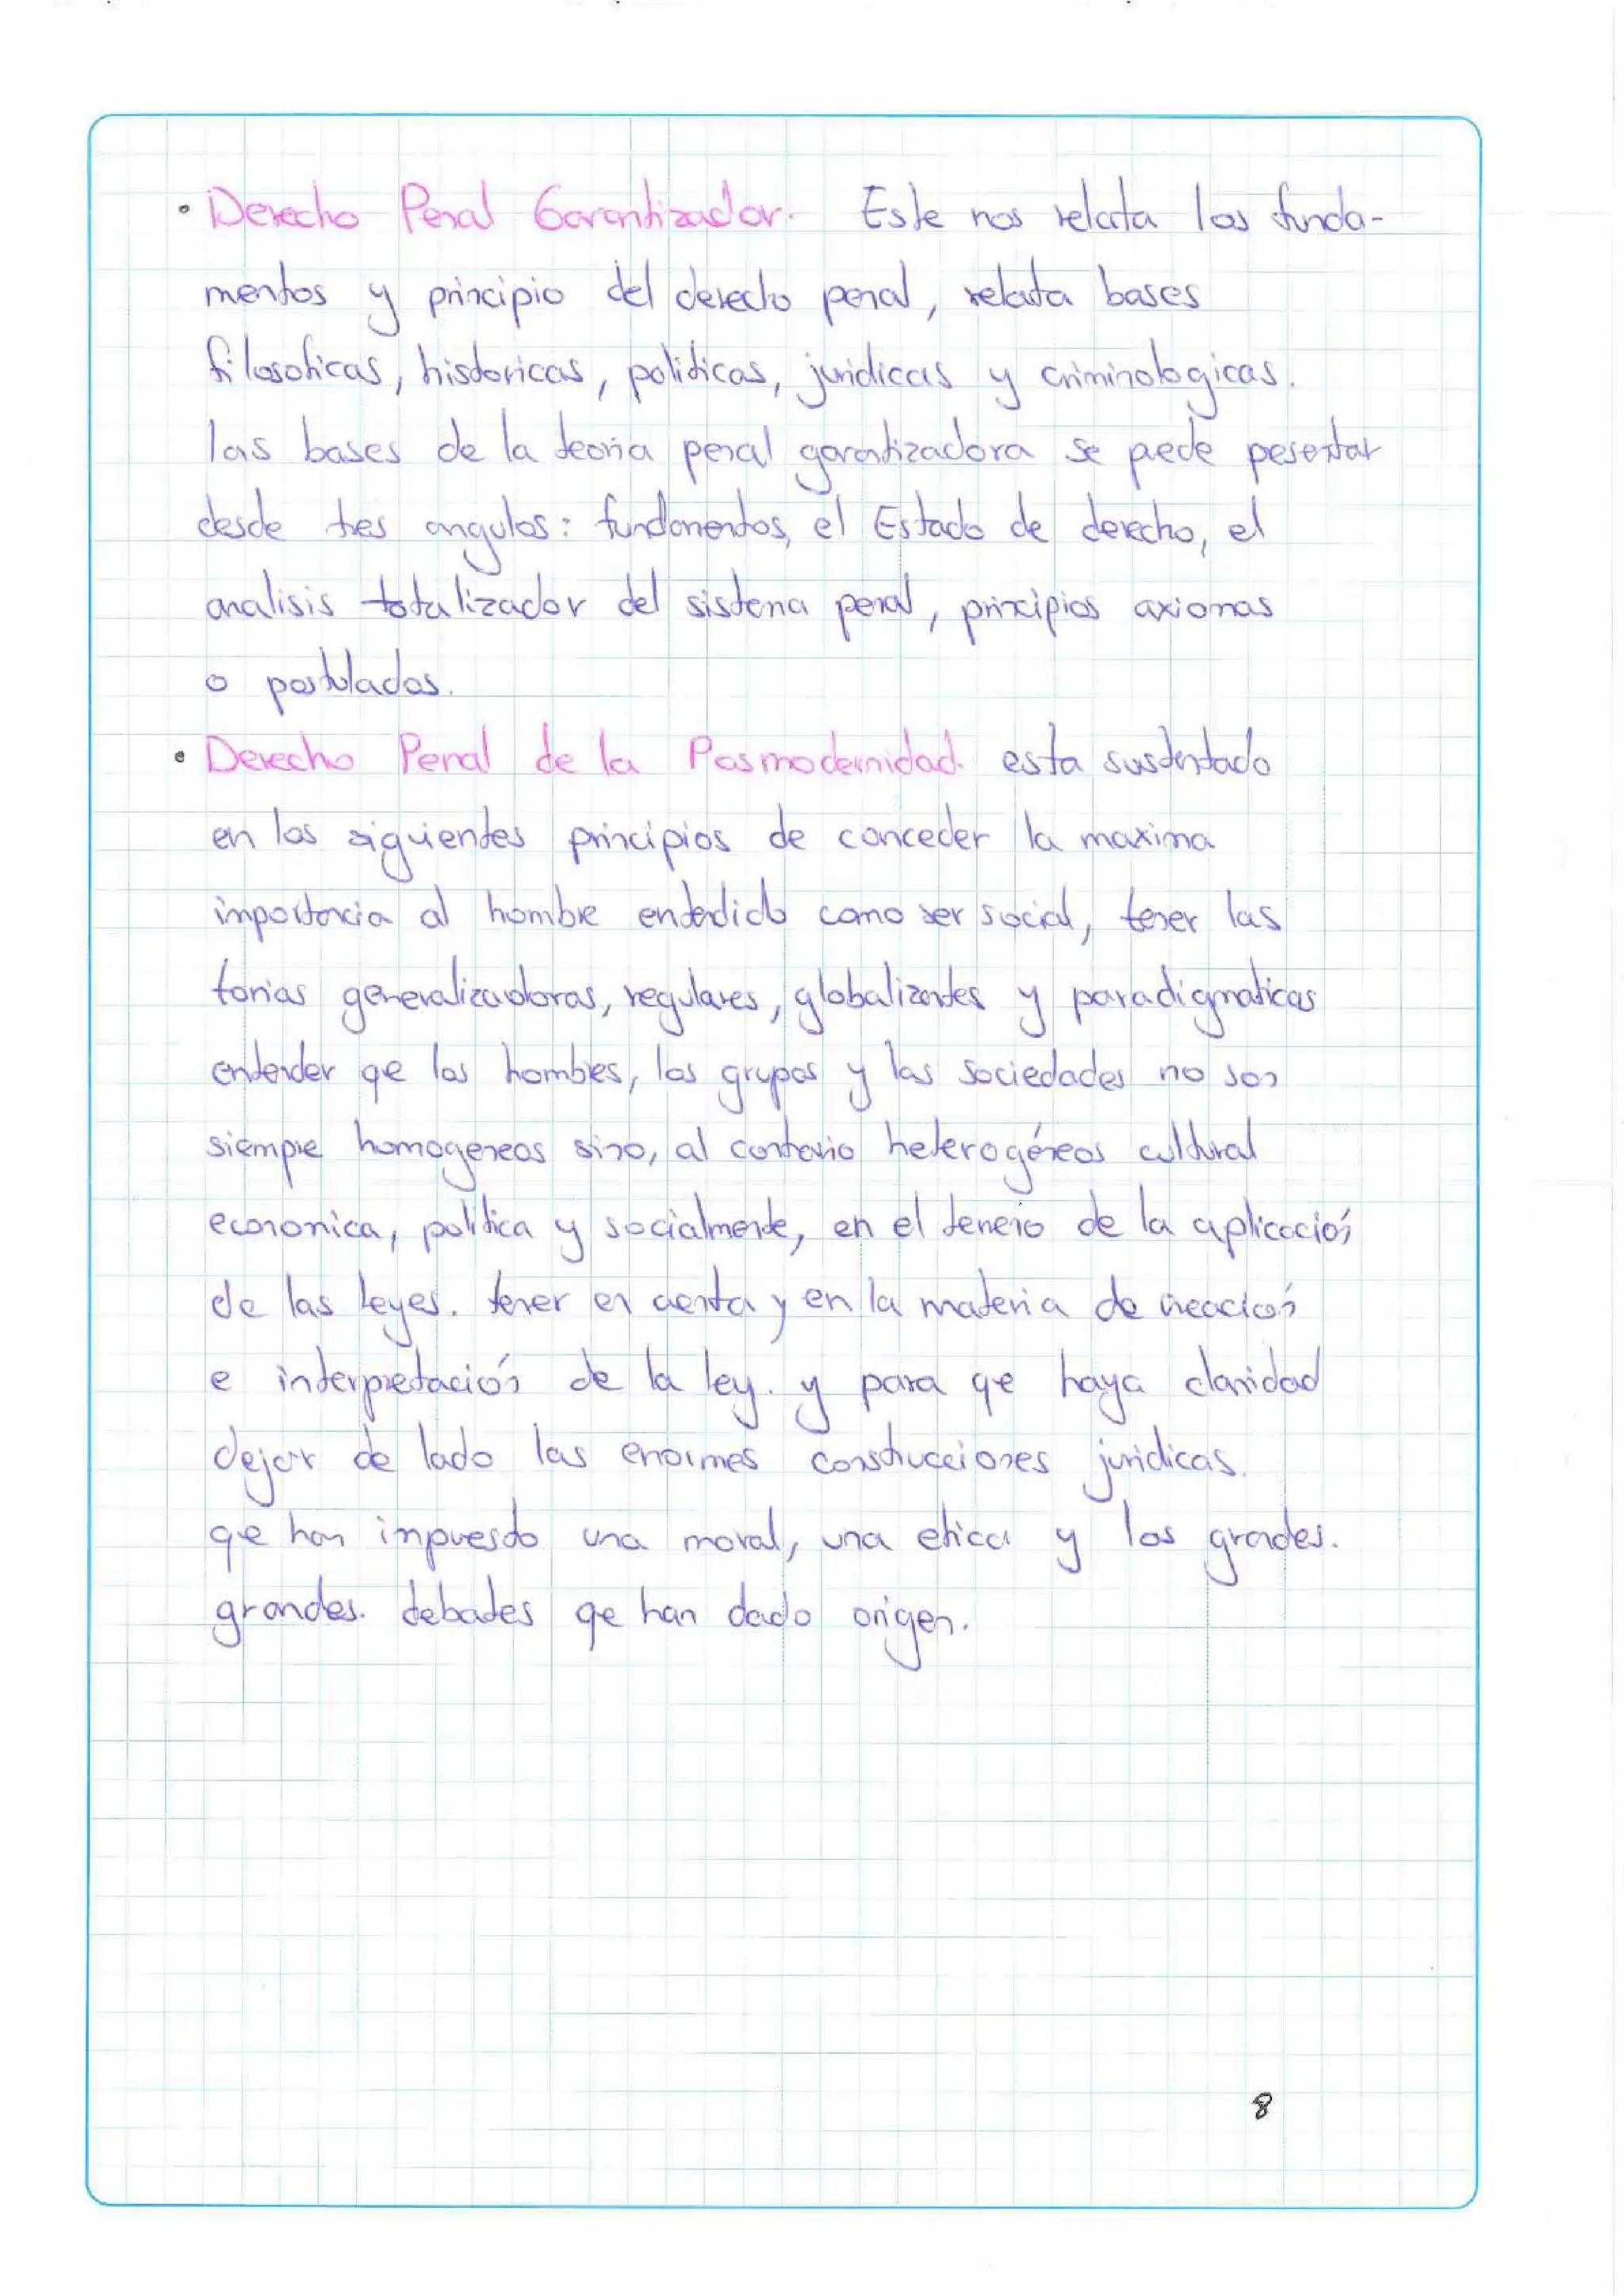 • Derecho Penal Garantizador. Este nos relata los funda-
mentos y principio del derecho penal, relata bases
filosoficas, historicas, politicas, juridicas y criminologicas.
las bases de la teoria penal garantizadora se puede pesentar
desde tres angulos: fundamentos, el Estado de derecho, el
analisis totalizador del sistema penal, principios axiomas
o postulados.
• Derecho Penal de la Posmodernidad. esta sustentado
en los siguientes principios de conceder la maxima
importancia al hombre entendido como ser social, tener las
torias generalizadoras, regulares, globalizantes y paradigmaticas
entender qe los hombres, los grupos y las sociedades no son
siempre homogeneos sino, al contrario heterogéneos cultural
economica, politica y socialmente, en el tereno de la aplicación
de las leyes. tener en cuenta y en la materia de creación
e interpretación de la ley. y para qe haya claridad
dejar de lado las enormes construcciones juridicas.
qe han impuesto una moral, una etica y los grandes.
grandes. debates qe han dado origen.
8